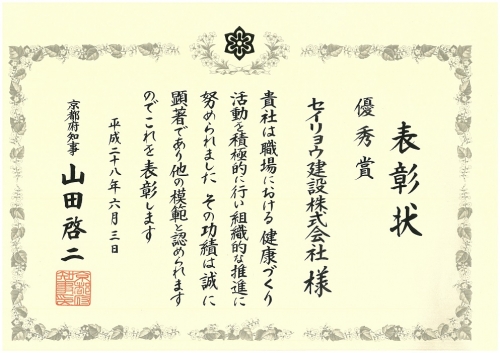 表彰状
優秀賞
セイリョウ建設株式会社 様
貴社は職場における健康づくり
活動を積極的に行い組織的な推進に
努められました その功績は誠に
顕著であり他の模範と認められます
のでこれを表彰します
平成二十八年六月三日
京都府知事 山田啓二
京都府知事之印